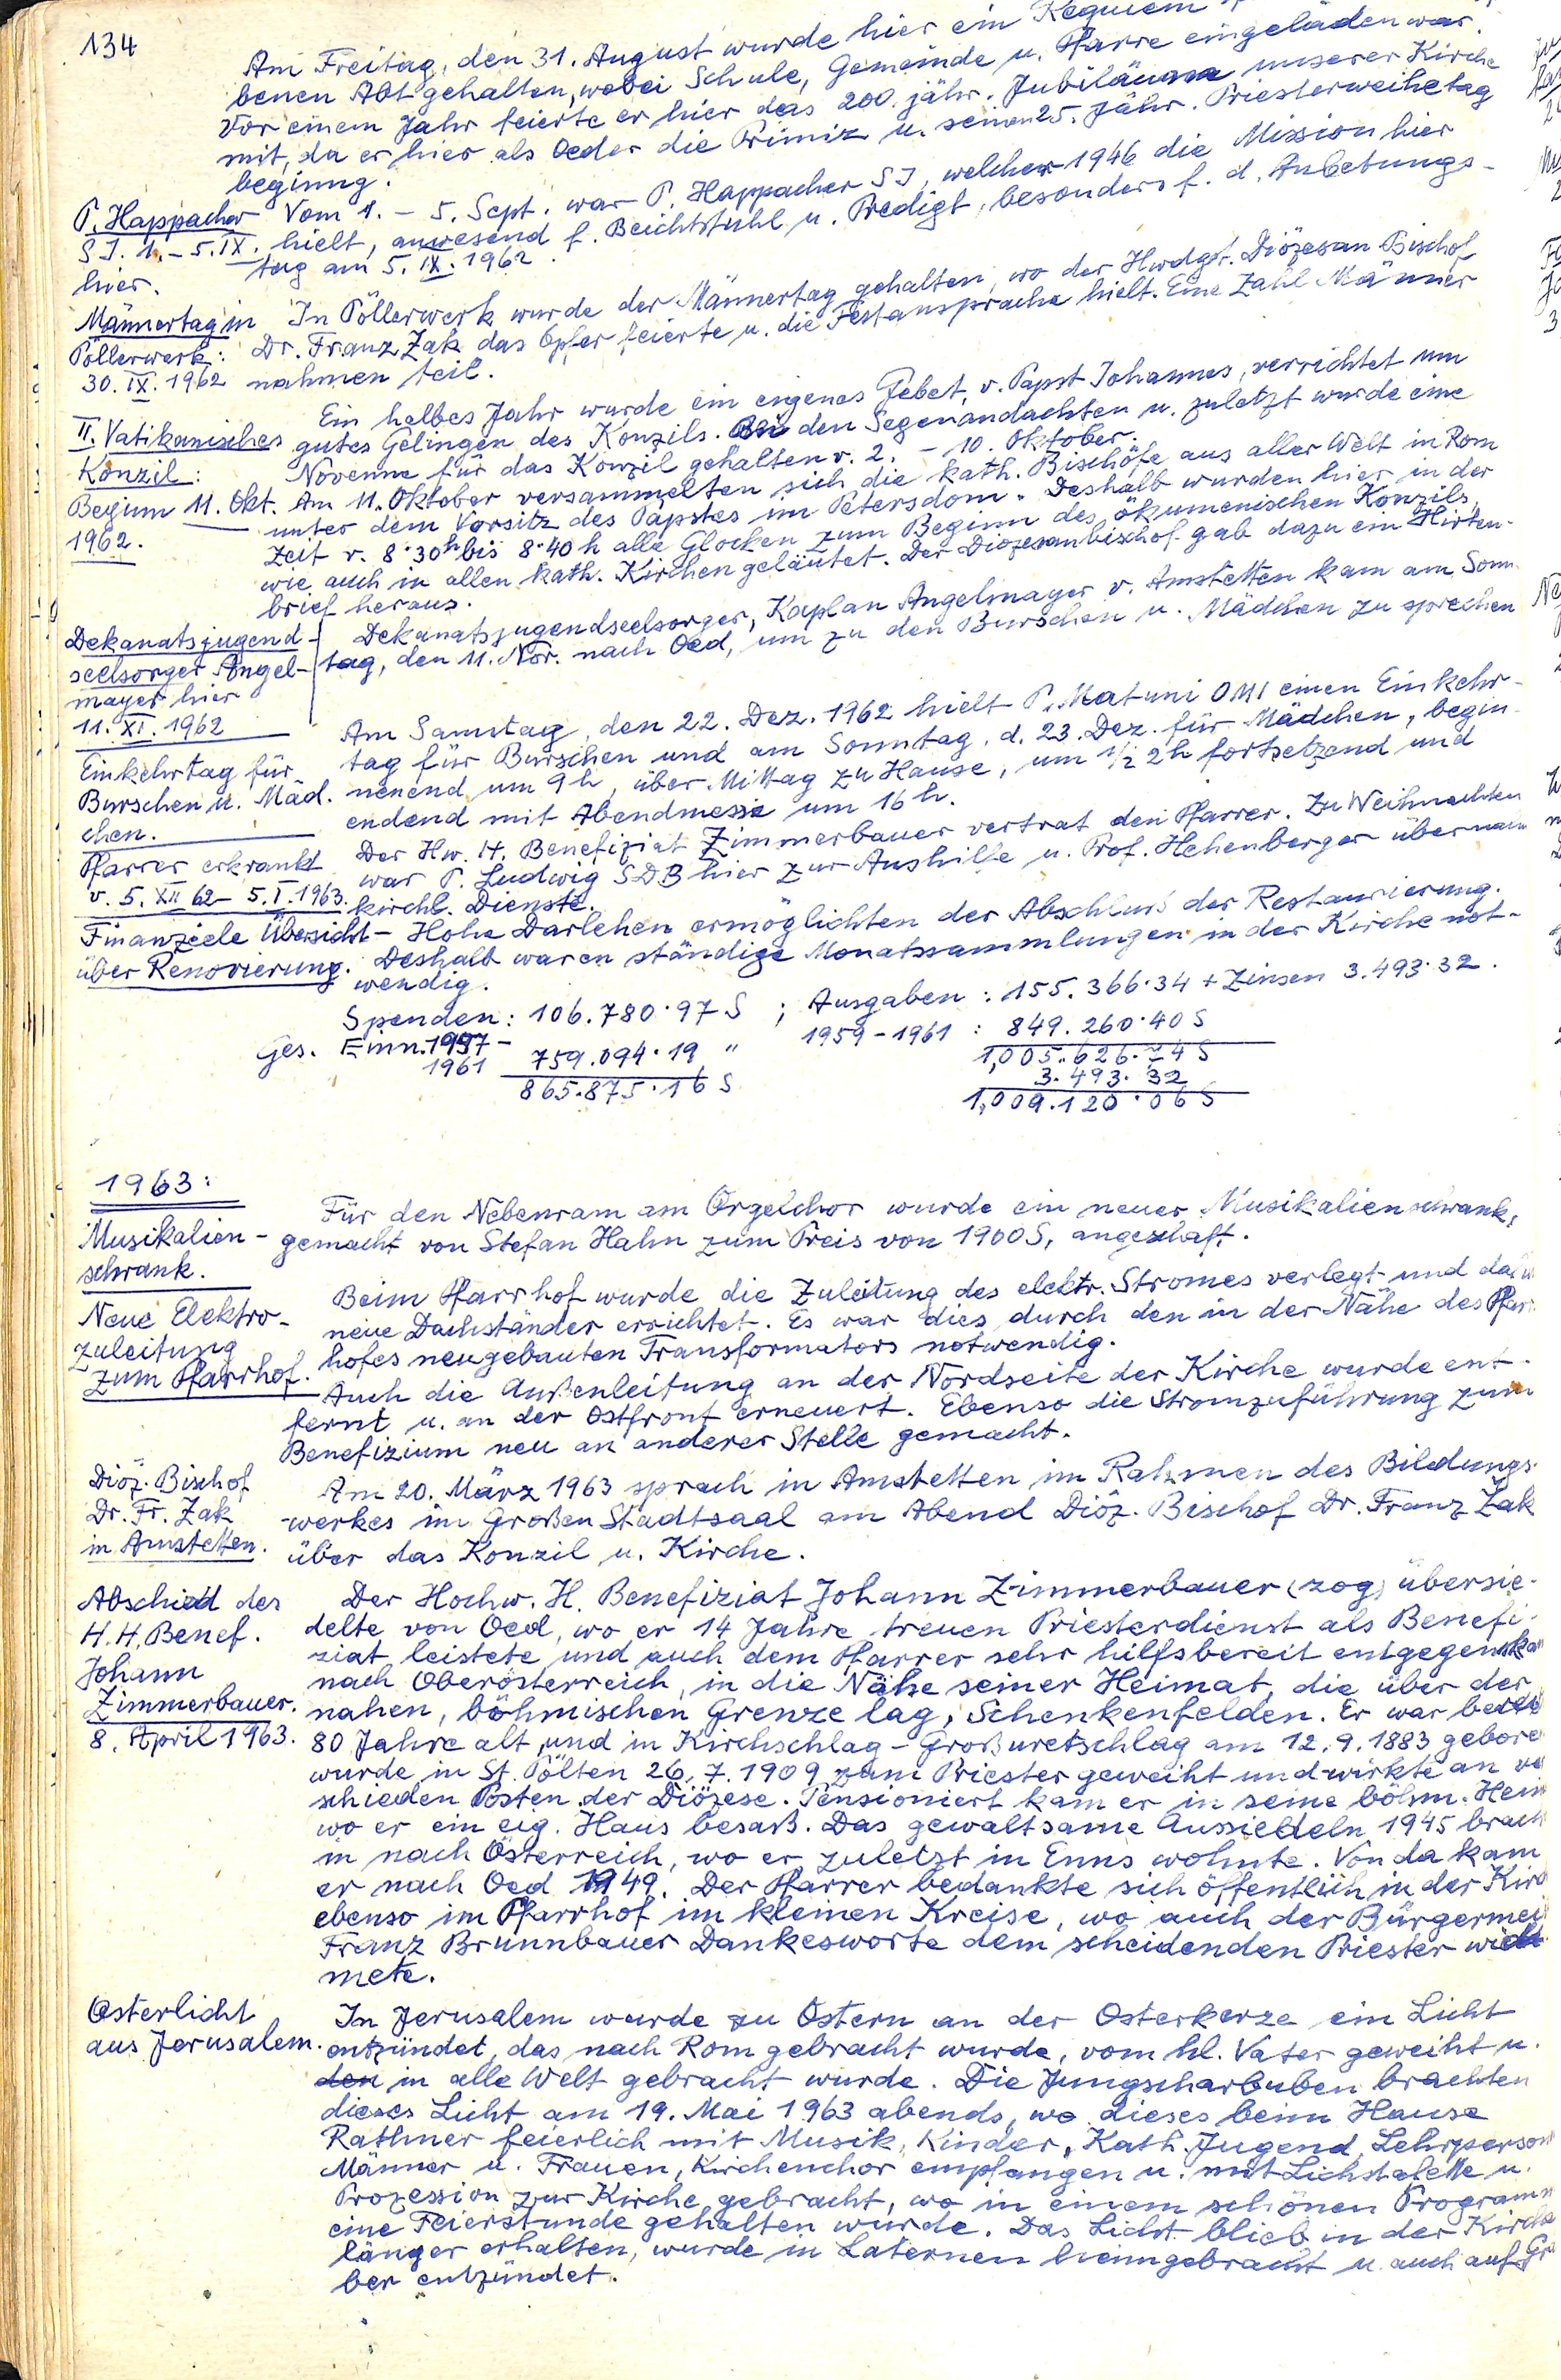 134
Am Freitag, den 31. August wurde hier ein Requiem
benen Abt gehalten, wobei Schule, Gemeinde u. Pfarre eingeladen war.
Vor einem Jahr feierte er hier das 200. jähr. Jubiläum unserer Kirche
mit, da er hier als Oeder die Primiz u. seinen 25. Jähr. Priesterweihetag
beginng.
P. Happacher
S J. 1. – 5. IX.
hier.
Vom 1. – 5. Sept. war P. Happacher S J, welcher 1946 die Mission hier
hielt, anwesend f. Beichtstuhl u. Predigt, besonders f. d. Anbetungs-
tag am 5. IX. 1962.
Männertag in
Pöllerwerk:
30. IX. 1962
In Pöllerwerk wurde der Männertag gehalten, wo der Hwdgst. Diözesan Bischof
Dr. Franz Zak das Opfer feierte u. die Festansprache hielt. Eine Zahl Männer
nahmen teil.
II. Vatikanisches
Konzil:
Beginn 11. Okt.
1962.
Ein halbes Jahr wurde ein eigenes Gebet, v. Papst Johannes, verrichtet um
gutes Gelingen des Konzils. Bei den Segenandachten u. zuletzt wurde eine
Novenne für das Konzil gehalten v. 2. – 10. Oktober.
Am 11. Oktober versammelten sich die kath. Bischöfe aus aller Welt in Rom
unter dem Vorsitz des Papstes im Petersdom. Deshalb wurden hier in der
Zeit v. 8·30h bis 8·40 h alle Glocken zum Beginn des ökumenischen Konzils,
wie auch in allen kath. Kirchen geläutet. Der Diözesanbischof gab dazu ein Hirten-
brief heraus.
Dekanatsjugend-
seelsorger Angel-
mayer hier
11. XI. 1962
Dekanatsjugendseelsorger, Kaplan Angelmayer v. Amstetten kam am Sonn-
tag, den 11. Nov. nach Oed, um zu den Burschen u. Mädchen zu sprechen
Einkehrtag für
Burschen u. Mäd.
chen.
Am Samstag, den 22. Dez. 1962 hielt P. Matuni OMI einen Einkehr-
tag für Burschen und am Sonntag, d. 23. Dez. für Mädchen, begin-
nenend um 9 h, über Mittag zu Hause, um 1/2 2h fortsetzend und
endend mit Abendmesse um 16 h.
Pfarrer erkrankt
v. 5. XII 62 – 5. I. 1963.
Der Hw. H. Benefiziat Zimmerbauer vertrat den Pfarrer. Zu Weihnachten
war P. Ludwig SDB hier zur Aushilfe u. Prof. Hehenberger übernam
kirchl. Dienste.
Finanziele Übersicht –
über Renovierung.
Hohe Darlehen ermöglichten der Abschluss der Restaurierung.
Deshalb waren ständige Monatssammlungen in der Kirche not-
wendig.
Spenden: 106.780·97 S ; Ausgaben: 155.366·34 + Zinsen 3.493·32.
Ges. Einn. 1957 –
1961 759.094·19 " 1959 – 1961: 849.260·40 S
865.875·16 S 1,005.626·74 S
3.493·32
1,009.120·06 S
1963:
Musikalien-
schrank.
Für den Nebenram am Orgelchor wurde ein neuer Musikalienschrank,
gemacht von Stefan Hahn zum Preis von 1900 S, angeschaft.
Neue Elektro-
zuleitung
zum Pfarrhof.
Beim Pfarrhof wurde die Zuleitung des elektr. Stromes verlegt und
neue Dachständer errichtet. Es war dies durch den in der Nähe des Pfarr-
hofes neugebauten Transformators notwendig.
Auch die Außenleitung an der Nordseite der Kirche wurde ent-
fernt u. an der Ostfront erneuert. Ebenso die Stromzuführung zum
Benefizium neu an anderer Stelle gemacht.
Diöz. Bischof
Dr. Fr. Zak
in Amstetten.
Am 20. März 1963 sprach in Amstetten im Rahmen des Bildungs-
werkes im Großen Stadtsaal am Abend Diöz. Bischof Dr. Franz Zak
über das Konzil u. Kirche.
Abschied des
H. H. Benef.
Johann
Zimmerbauer.
8. April 1963.
Der Hochw. H. Benefiziat Johann Zimmerbauer (zog) übersie-
delte von Oed, wo er 14 Jahre treuen Priesterdienst als Benefi-
ziat leistete und auch dem Pfarrer sehr hilfsbereit entgegenkam
nach Oberösterreich, in die Nähe seiner Heimat, die über der
nahen, böhmischen Grenze lag, Schenkenfelden. Er war
80 Jahre alt, und in Kirchschlag – Großuretschlag am 12. 9. 1883 gebore
wurde in St. Pölten 26. 7. 1909 zum Priester geweiht und wirkte an ve
schieden Posten der Diözese. Pensioniert kam er in seine böhm. Heim
wo er ein eig. Haus besaß. Das gewaltsame Aussiedeln 1945 brach
in nach Österreich, wo er zuletzt in Enns wohnte. Von da kam
er nach Oed 1949. Der Pfarrer bedankte sich öffentlich in der Kirch
ebenso im Pfarrhof im kleinen Kreise, wo auch der Bürgermei
Franz Brunnbauer Dankesworte dem scheidenden Priester wid
mete.
Osterlicht
aus Jerusalem.
In Jerusalem wurde zu Ostern an der Osterkerze ein Licht
entzündet, das nach Rom gebracht wurde, vom hl. Vater geweiht u.
den in alle Welt gebracht wurde. Die Jungscharbuben brachten
dieses Licht am 19. Mai 1963 abends, wo dieses beim Hause
Rathner feierlich mit Musik, Kinder, Kath. Jugend, Lehrperson
Männer u. Frauen, Kirchenchor empfangen u. mit Lichstafette u.
Prozession zur Kirche gebracht, wo in einem schönen Programm
eine Feierstunde gehalten wurde. Das Licht blieb in der Kirche
länger erhalten, wurde in Laternen heimgebracht u. auch auf Grä
ber entzündet.